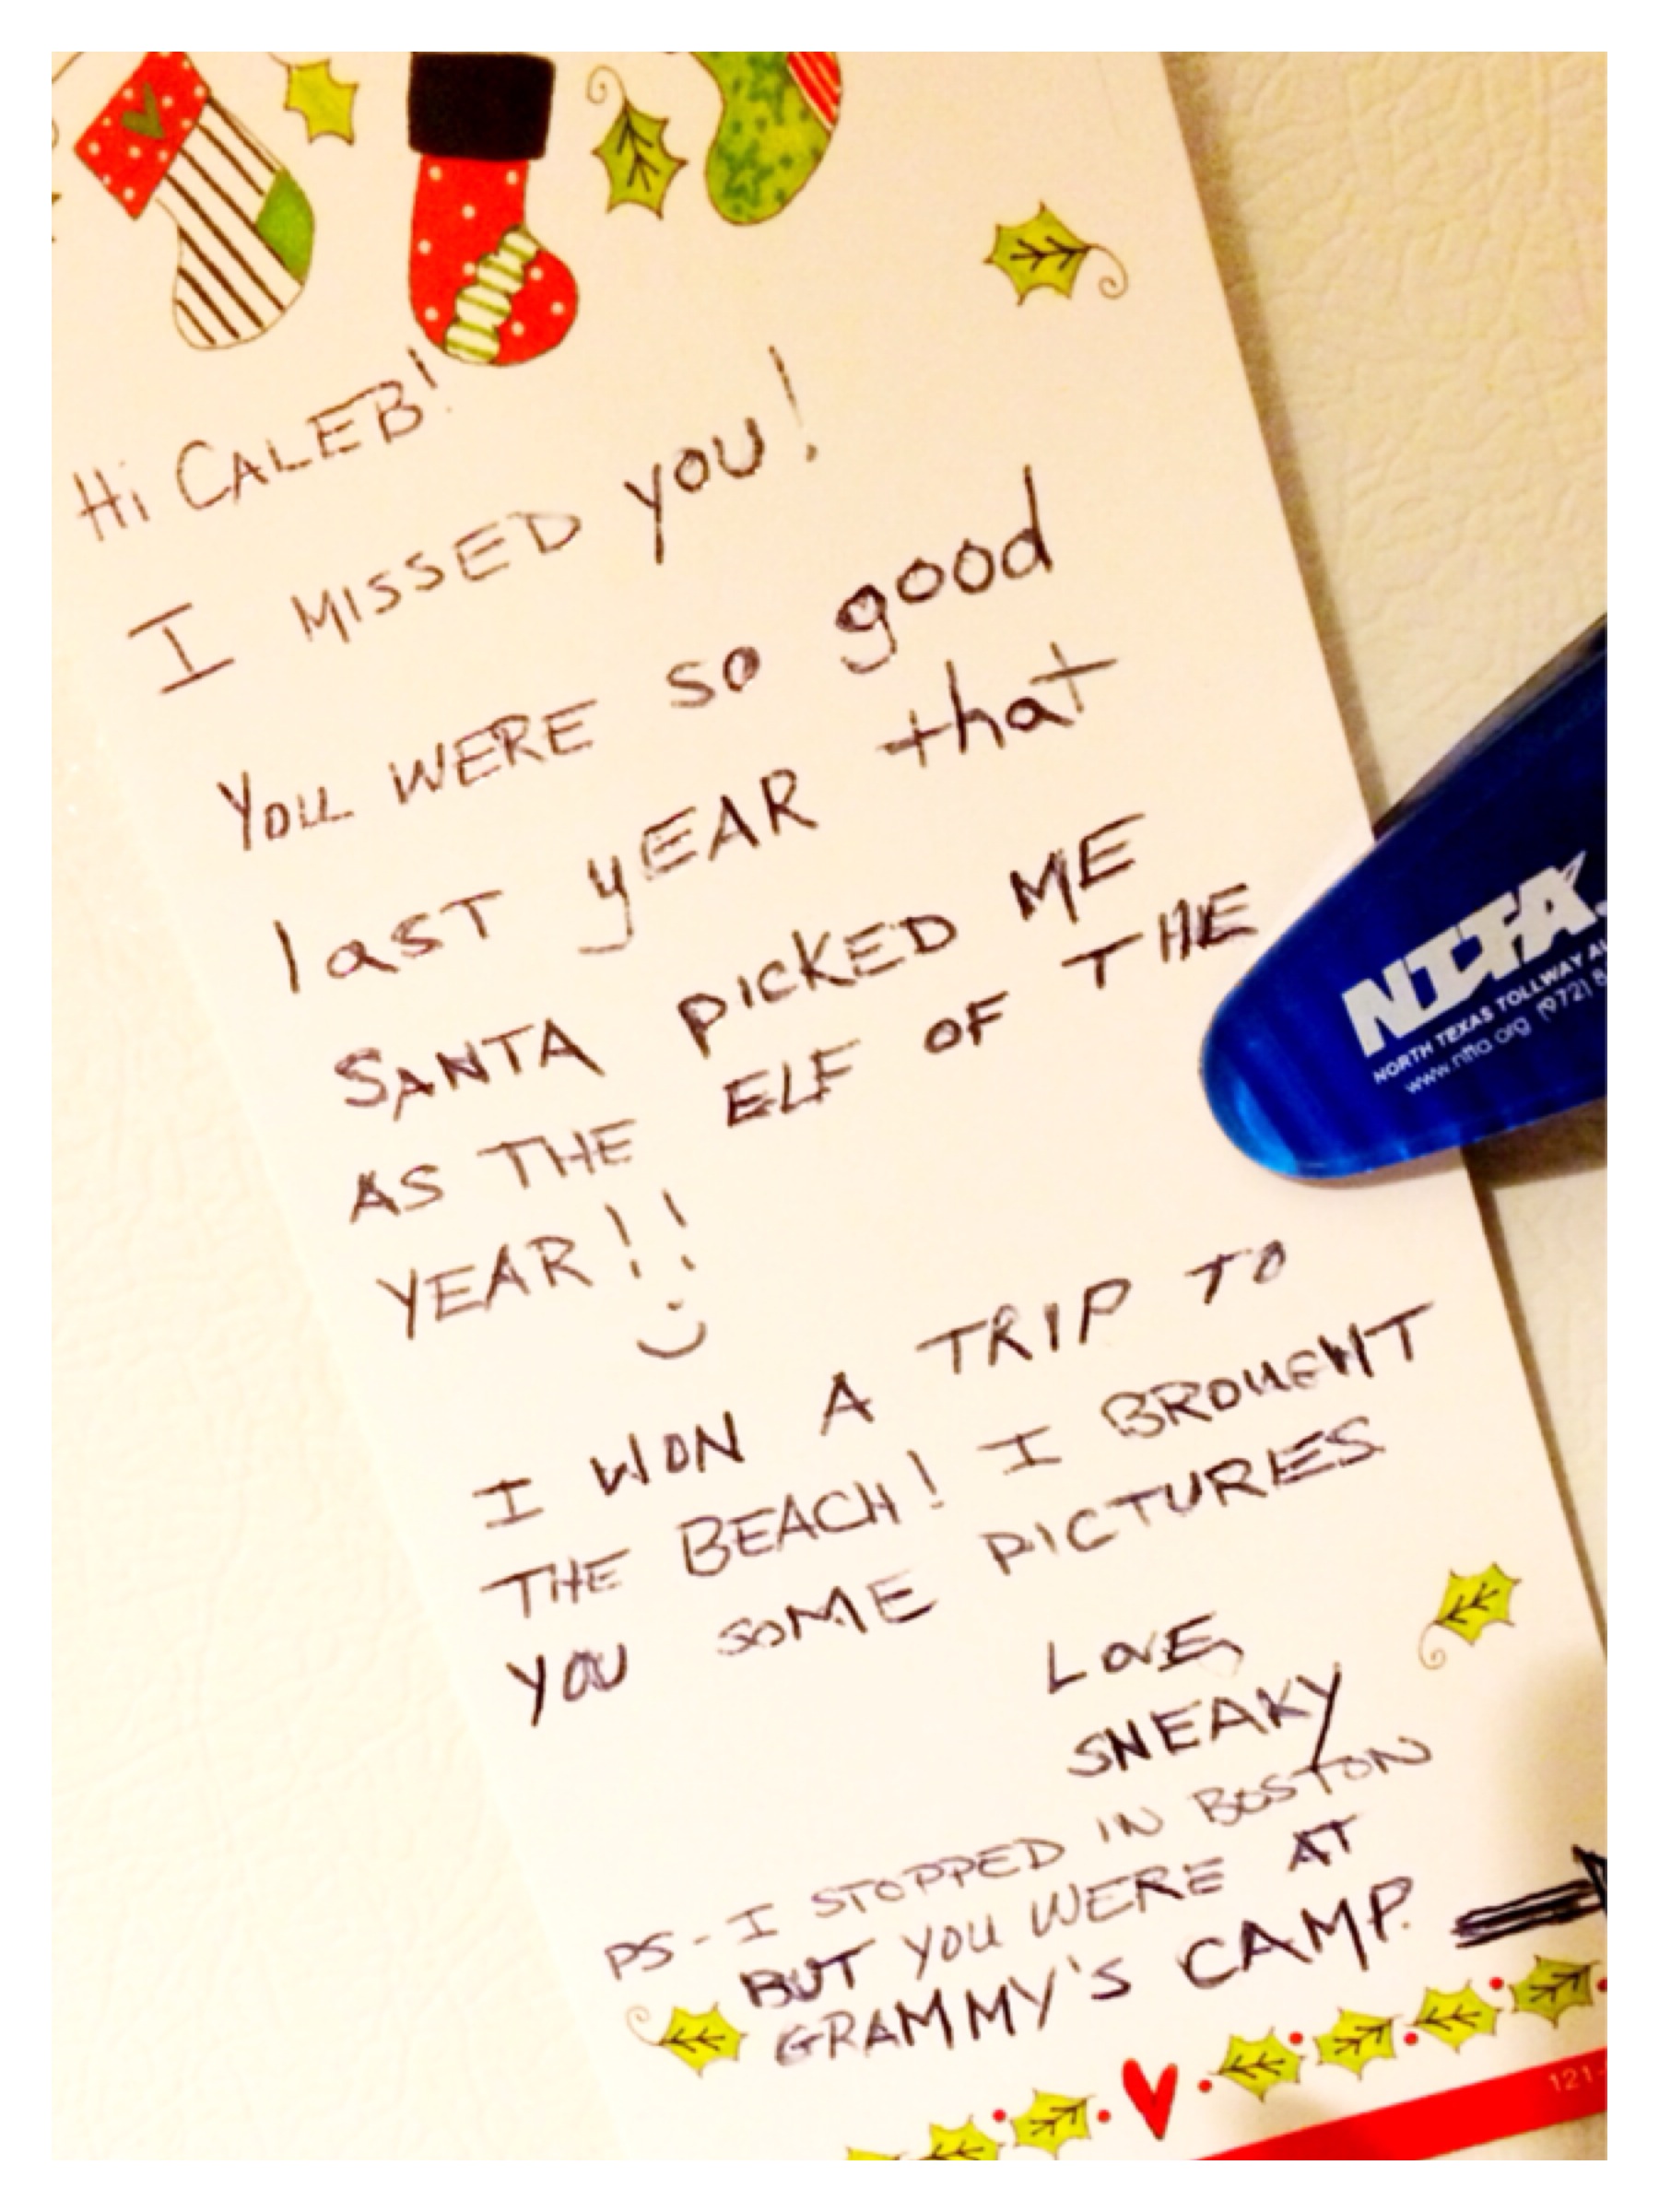 Hi CALEB!
I MISSED you!
YOU WERE so good
last yEAR that
SANTA PICKED ME
AS THE ELF OF THE
YEAR!!
I WON A TRIP TO
THE BEACH! I BROUGHT
YOU SOME PICTURES
LOVE,
SNEAKY
PS - I STOPPED IN BOSTON
BUT YOU WERE AT
GRAMMY'S CAMP.
NTTA
NORTH TEXAS TOLLWAY
www.ntta.org (972) 8
121-